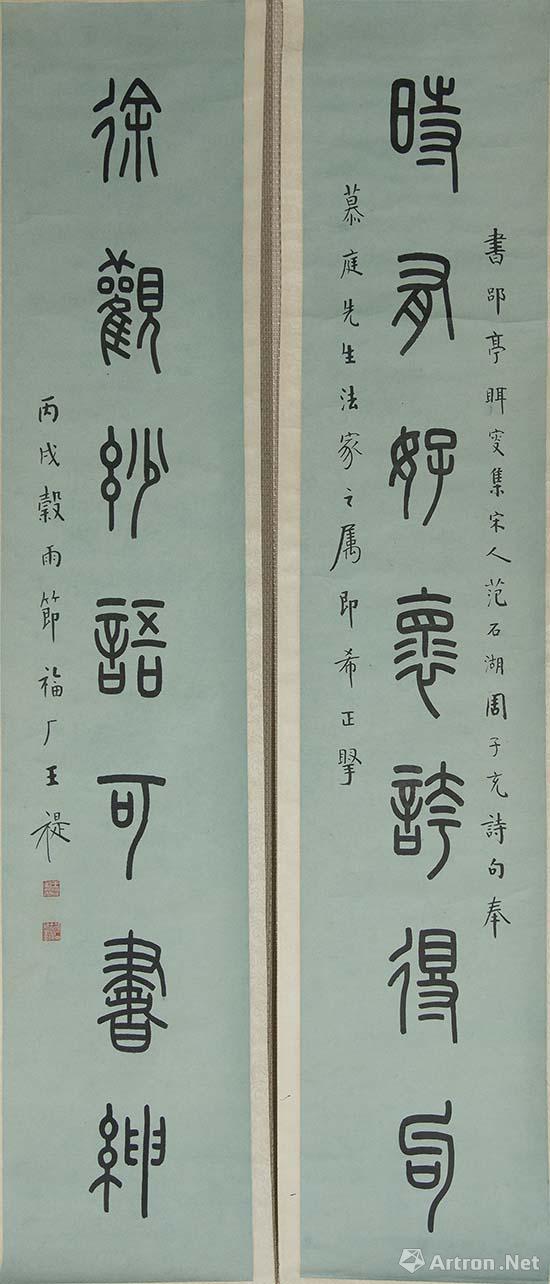 書郘亭眲叜集宋人范石湖周子充詩句奉
時有好懷誇得句
慕庭先生法家之属即希正掔
徐觀玅語可書紳
丙戌穀雨節福厂王禔
Artron.Net